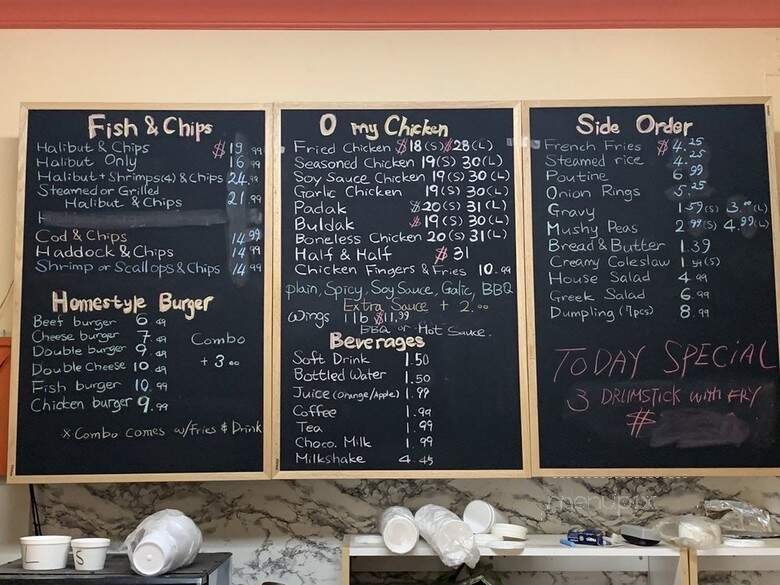 Fish & Chips
Halibut & Chips $19.99
Halibut Only 16.99
Halibut + Shrimps(4) & Chips 24.99
Steamed or Grilled
Halibut & Chips 21.99
Cod & Chips 14.99
Haddock & Chips 14.99
Shrimp or Scallops & Chips 14.99
Homestyle Burger
Beef burger 6.49
Cheese burger 7.49
Double burger 9.49
Double Cheese 10.49
Fish burger 10.99
Chicken burger 9.99
Combo
+ 3.00
x Combo comes w/Fries & Drink
O my Chicken
Fried Chicken $18(S) $28(L)
Seasoned Chicken 19(S) 30(L)
Soy Sauce Chicken 19(S) 30(L)
Garlic Chicken 19(S) 30(L)
Padak $20(S) 31(L)
Buldak $19(S) 30(L)
Boneless Chicken 20(S) 31(L)
Half & Half $31
Chicken Fingers & Fries 10.99
plain, Spicy, Soy Sauce, Galic, BBQ
Extra Sauce + 2.00
Wings 1 lb $11.99
BBQ or Hot Sauce.
Beverages
Soft Drink 1.50
Bottled Water 1.50
Juice (orange/Apple) 1.99
Coffee 1.99
Tea 1.99
Choco. Milk 1.99
Milkshake 4.45
Side Order
French Fries $4.25
Steamed rice 4.25
Poutine 6.99
Onion Rings 5.25
Gravy 1.59(S) 3.00(L)
Mushy Peas 2.99(S) 4.99(L)
Bread & Butter 1.39
Creamy Coleslaw (S)
House Salad 4.99
Greek Salad 6.99
Dumpling (7pcs) 8.99
TODAY SPECIAL
3 DRUMSTICK with FRY
$
menupix